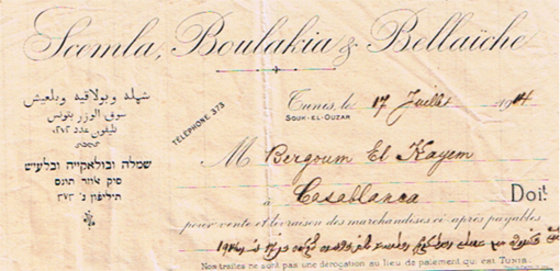 Scemla, Boulakia & Bellaïche
شمله وبولاقيه وبلعيش
سوق الوزر بتونس
تليفون عدد ٣٧٣
שמלה ובולאקייה ובלעיש
סיק אוזר תונס
תיליפון נ׳ ٣٧٣
TÉLÉPHONE 373
Tunis, le 17 Juillet 1914
SOUK-EL-OUZAR
M Bergoum El Kayem
à Casablanca Doit
pour vente et livraison des marchandises ci-après payables
Nos traites ne sont pas une dérogation au lieu de paiement qui est TUNIS.